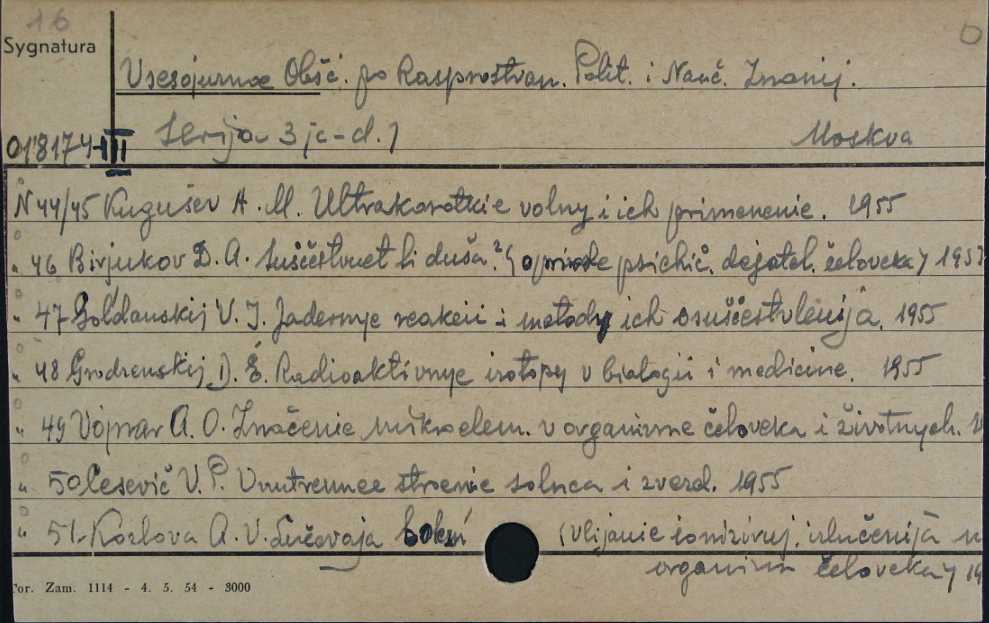 16 b
Sygnatura
Vsesojuznoe Obšč. po Rasprostran. Polit. i Nauč. Znanij.
018174 III Serija 3 ja-d. 1 Moskva
N 44/45 Kugušev A. M. Ultrakorotkie volny i ich primenenie. 1955
" 46 Birjukov D. A. Suščestvuet li duša? (o prirode psichič. dejatel. čeloveka) 195
" 47 Gol'danskij V. I. Jadernye reakcii i metody ich osuščestvlenija. 1955
" 48 Grodzenskij D. E. Radioaktivnye izotopy v biologii i medicine. 1955
" 49 Vojnar A. O. Značenie mikroelem. v organizme čeloveka i životnych. 1
" 50 Cesevič V. P. Vnutrennee stroenie solnca i zvezd. 1955
" 51. Kozlova A. V. Lučevaja bolezń (vlijanie ioniziruj. izlučenija n
organizm čeloveka) 19
Tor. Zam. 1114 - 4. 5. 54 - 3000